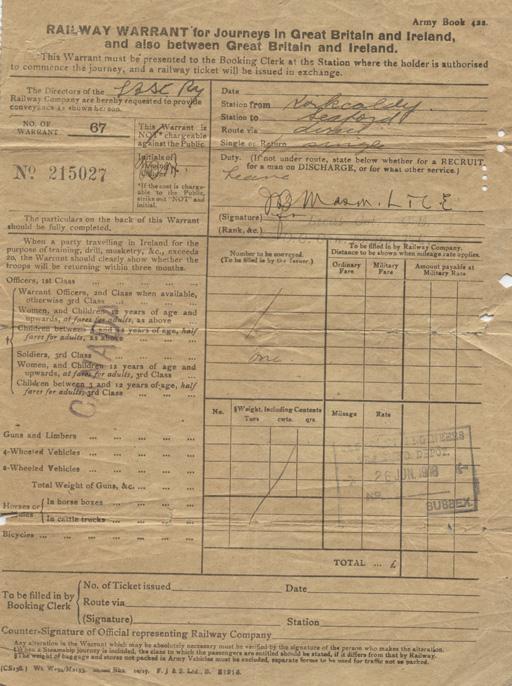 Army Book 422.
RAILWAY WARRANT for Journeys in Great Britain and Ireland,
and also between Great Britain and Ireland.
This Warrant must be presented to the Booking Clerk at the Station where the holder is authorised
to commence the journey, and a railway ticket will be issued in exchange.
The Directors of the
Railway Company are hereby requested to provide
conveyance as shown below.
NO. OF
WARRANT
67
This Warrant is
NOT chargeable
against the Public
Initials of
No 215027
*If the cost is charge-
able to the Public,
strike out "NOT" and
initial.
Date
Station from
Station to Seaford
Route via direct
Single or Return single
Duty. (If not under route, state below whether for a RECRUIT,
for a man on DISCHARGE, or for what other service.)
(Signature)
(Rank, &c.)
The particulars on the back of this Warrant
should be fully completed.
When a party travelling in Ireland for the
purpose of training, drill, musketry, &c., exceeds
20, the Warrant should clearly show whether the
troops will be returning within three months.
Number to be conveyed.
(To be filled in by the Issuer.)
To be filled in by Railway Company.
Distance to be shown when mileage rate applies.
Ordinary Fare
Military Fare
Amount payable at Military Rate
Officers, 1st Class
Warrant Officers, 2nd Class when available,
otherwise 3rd Class
Women, and Children 12 years of age and
upwards, at fares for adults, as above
Children between 3 and 12 years of age, half
fares for adults, as above
Soldiers, 3rd Class
one
Women, and Children 12 years of age and
upwards, at fares for adults, 3rd Class
Children between 3 and 12 years of age, half
fares for adults, 3rd Class
No.
§Weight, including Contents
Tons cwts. qrs.
Mileage
Rate
Guns and Limbers
4-Wheeled Vehicles
2-Wheeled Vehicles
Total Weight of Guns, &c.
Horses or
In horse boxes
In cattle trucks
Bicycles
26 JUN. 1918
SUSSEX
TOTAL ... £
To be filled in by
Booking Clerk
No. of Ticket issued
Date
Route via
(Signature)
Station
Counter-Signature of Official representing Railway Company
Any alteration in the Warrant which may be absolutely necessary must be verified by the signature of the person who makes the alteration.
§The weight of baggage and stores not packed in Army Vehicles must be excluded, separate forms to be used for traffic not so packed.